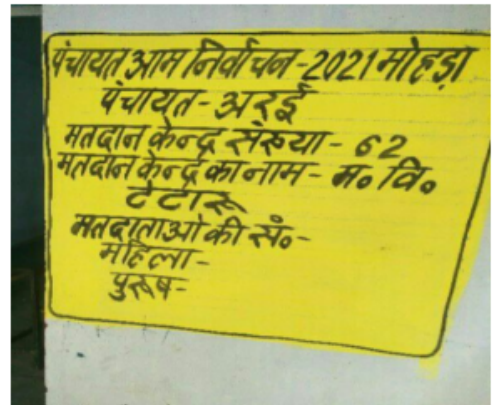 पंचायत आम निर्वाचन-2021 मोहड़ा
पंचायत-अरई
मतदान केन्द्र संख्या-62
मतदान केन्द्र का नाम-म॰ वि॰
टेटारू
मतदाताओ की सं॰-
महिला-
पुरूष-